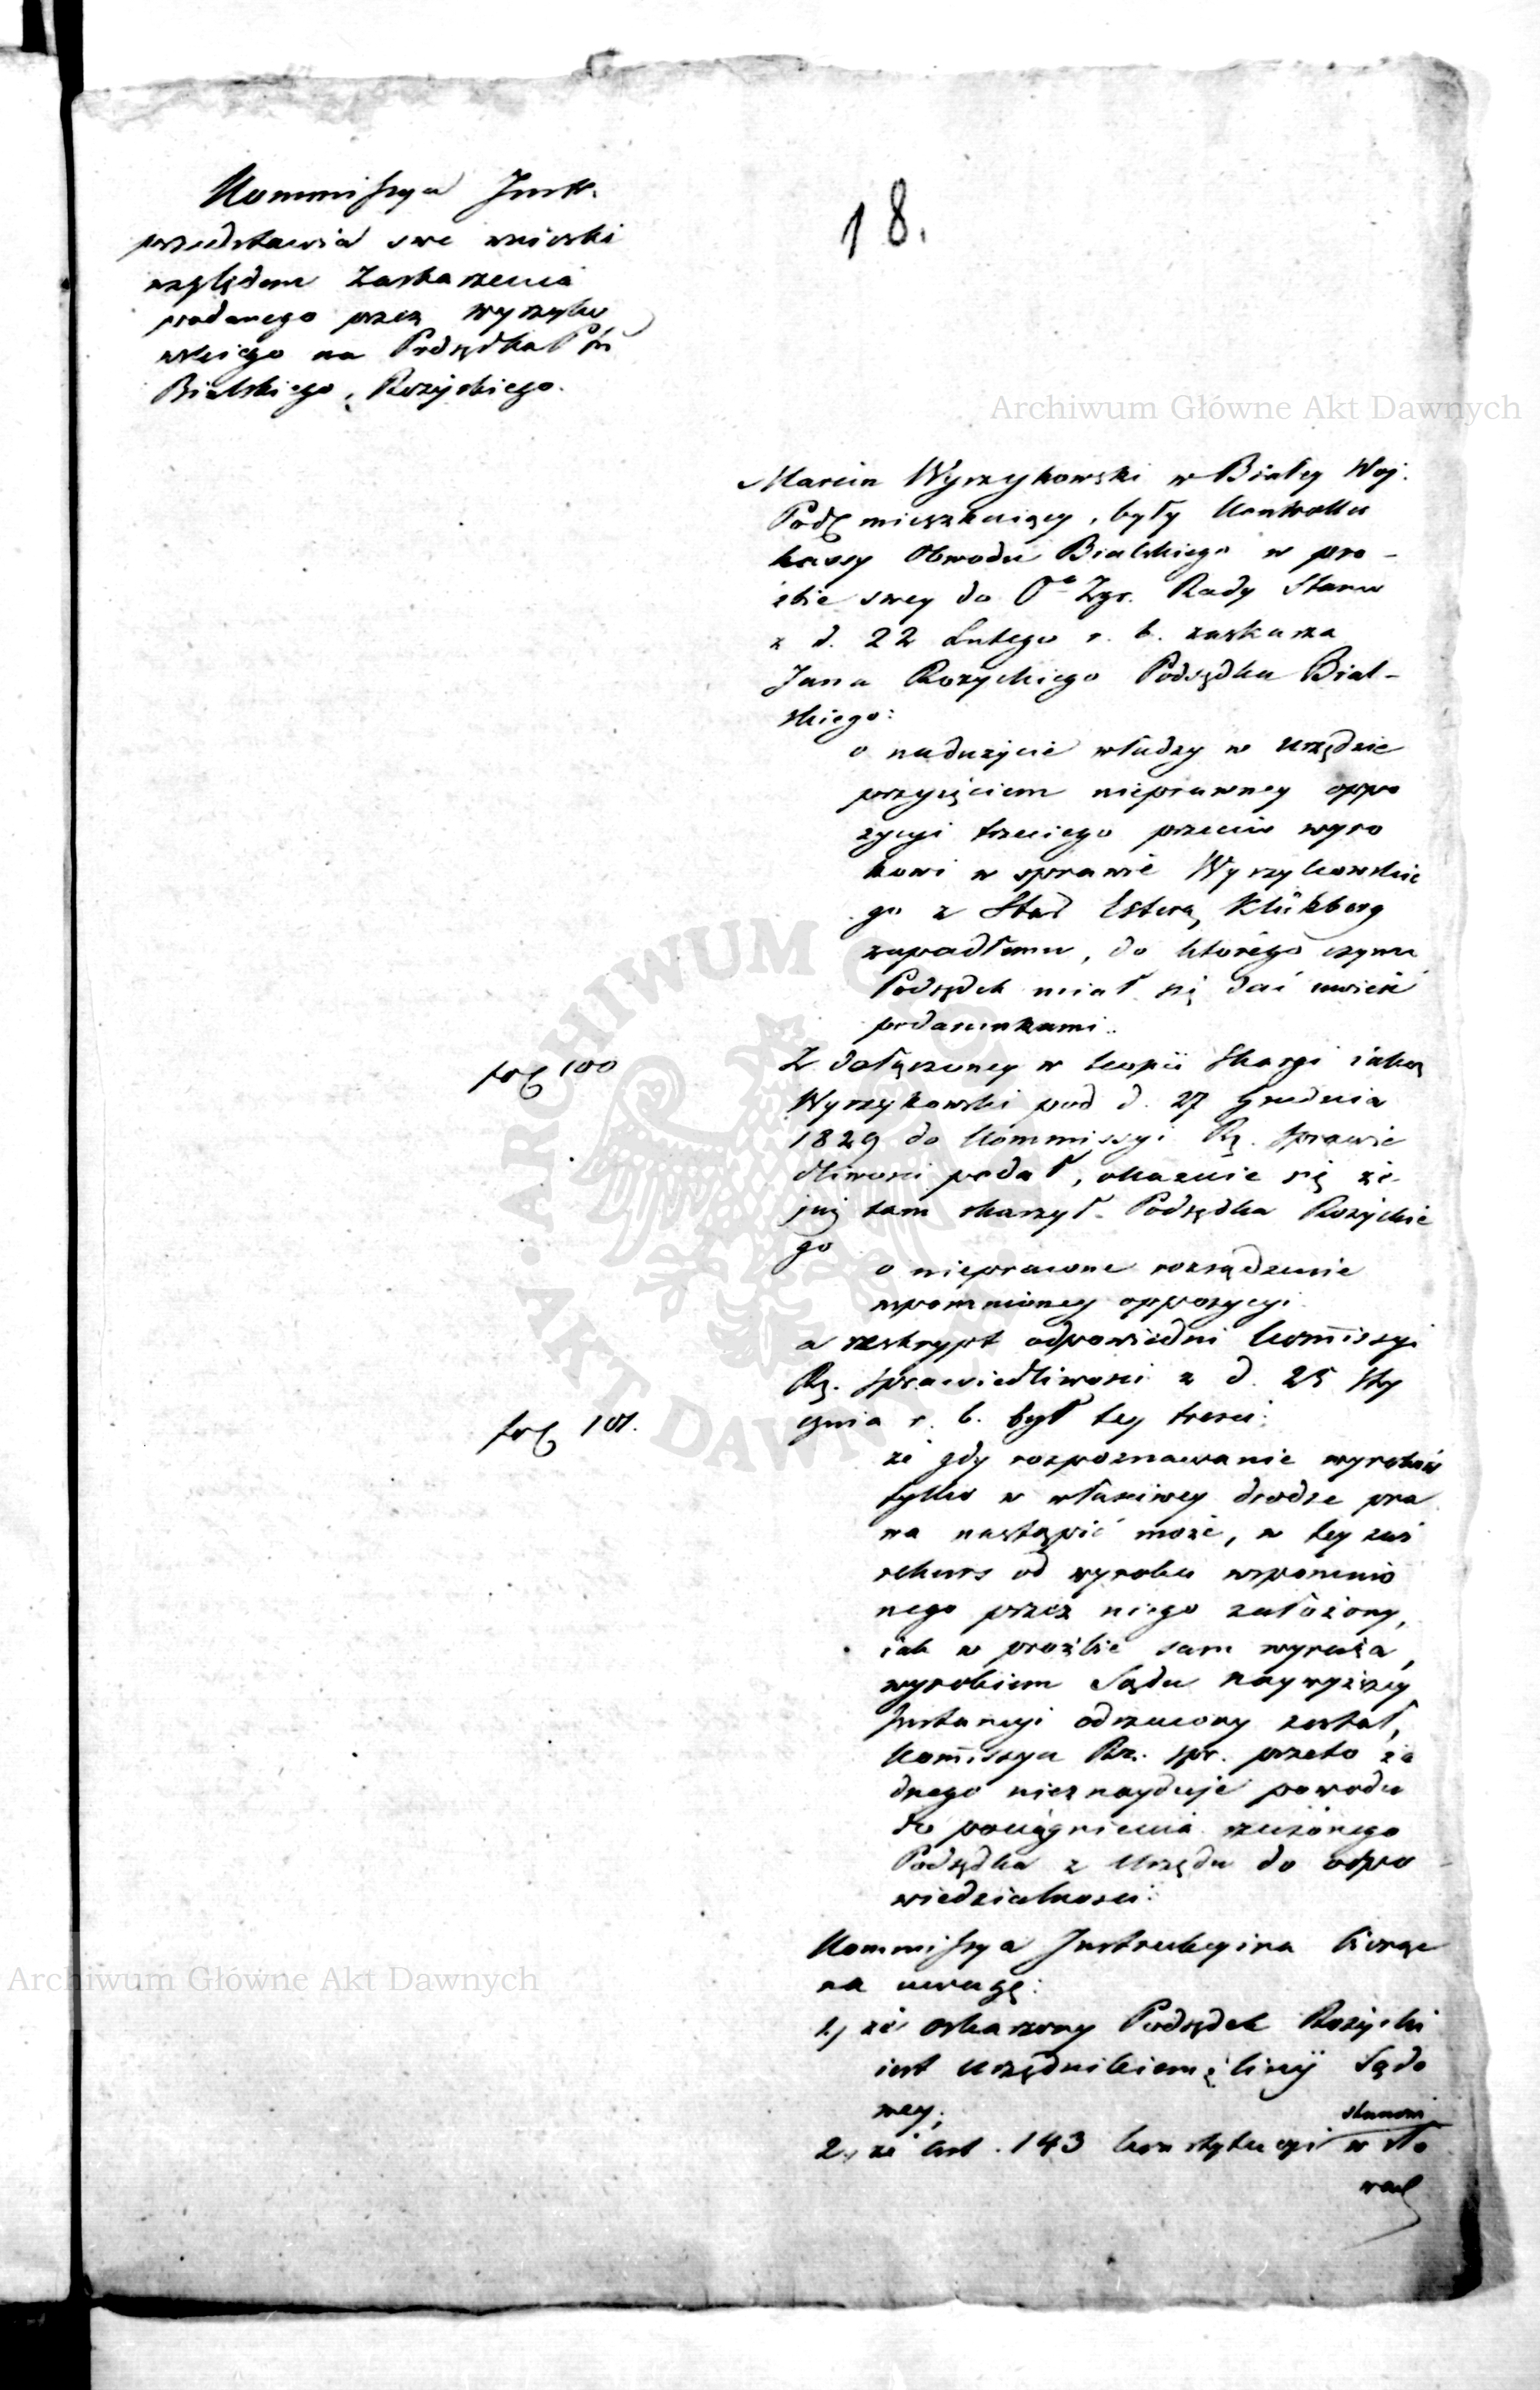 Kommissya Instr.
przedstawia swe wnioski
względem Zaskarzenia
podanego przez Wyrzyko
wskiego na Podsędka Ptu
Bialskiego, Rozyckiego.
18.
Archiwum Główne Akt Dawnych
Marcin Wyrzykowski w Białey Woj.
Podl. mieszkaiący, były Kontroller
kassy Obwodu Bialskiego w pro-
źbie swey do Ogo Zgr. Rady Stanu
z d. 22 Lutego r. b. zaskarza
Jana Rozyckiego Podsędka Bial-
skiego:
o nadużycie władzy w urzędzie
przyjęciem nieprawney oppo
zycyi trzeciego przeciw wyro
kowi w sprawie Wyrzykowskie
go z Sta Esterą
zapadłemu, do którego czynu
Podsędek miał się dać uwieść
podarunkami.
fol 100
Z dołączoney w kopii Skargi iaką
Wyrzykowski pod d. 27 Grudnia
1829 do Kommissyi Rz. Sprawie
dliwości podał, okazuie się że
już tam skarżył Podsędka Rożyckie
go
o nieprawne rozsądzenie
wpomnioney oppozycyi
a reskrypt odpowiedni Komissyi
Rz. Sprawiedliwości z d. 25 Sty
cznia r. b. był tey treści:
fol 101.
że gdy rozpoznawanie wyroków
tylko w właściwey drodze pra
wa nastąpić może, w tey zaś
rekurs od wyroku wspomnio
nego przez niego założony,
iak w proźbie sam wyraża,
wyrokiem Sądu naywyższey
Instancyi odrzucony został,
Komissya Rz. spr. przeto ża
dnego nieznayduje powodu
do pociągnienia rzeczonego
Podsędka z Urzędu do odpo
wiedzialności:
Kommissya Instrukcyina biorąc
na uwagę:
Archiwum Główne Akt Dawnych
1, że oskarzony Podsędek Rożycki
iest urzędnikiem linij Sądo
wey;
2, że Art. 143 konstytucyi stanowi w sło
wach
ARCHIWUM GŁÓWNE AKT DAWNYCH